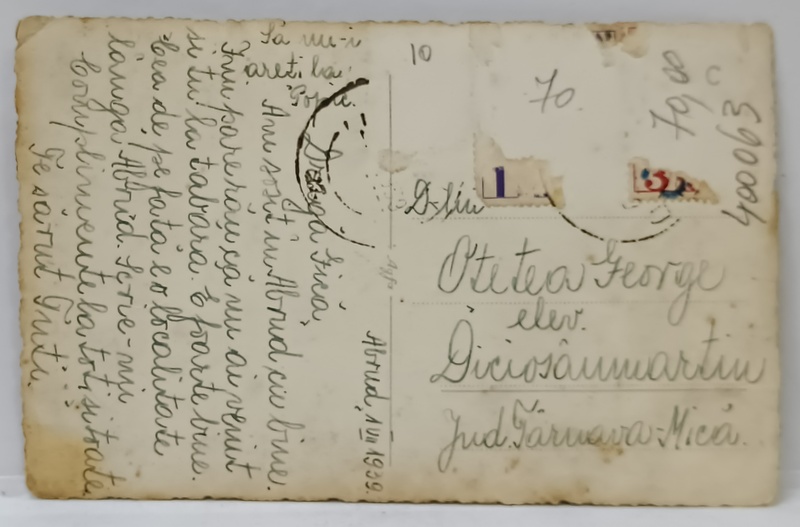 Abrud, 1 VII 1939.
Dragă Gică,
Am sosit în Abrud cu bine.
Îmi pare rău că nu ai venit
si tu la tabara. E foarte bine.
Cea de pe fată e o localitate
lângă Abrud. Scrie-mi
Complimente la toti si toate
Te sărut Tuti.
Sa nu-i
areti la
10
70.
70,00
C
400063
D-lui
Otetea George
elev.
Diciosânmartin
Jud. Târnava-Mică.